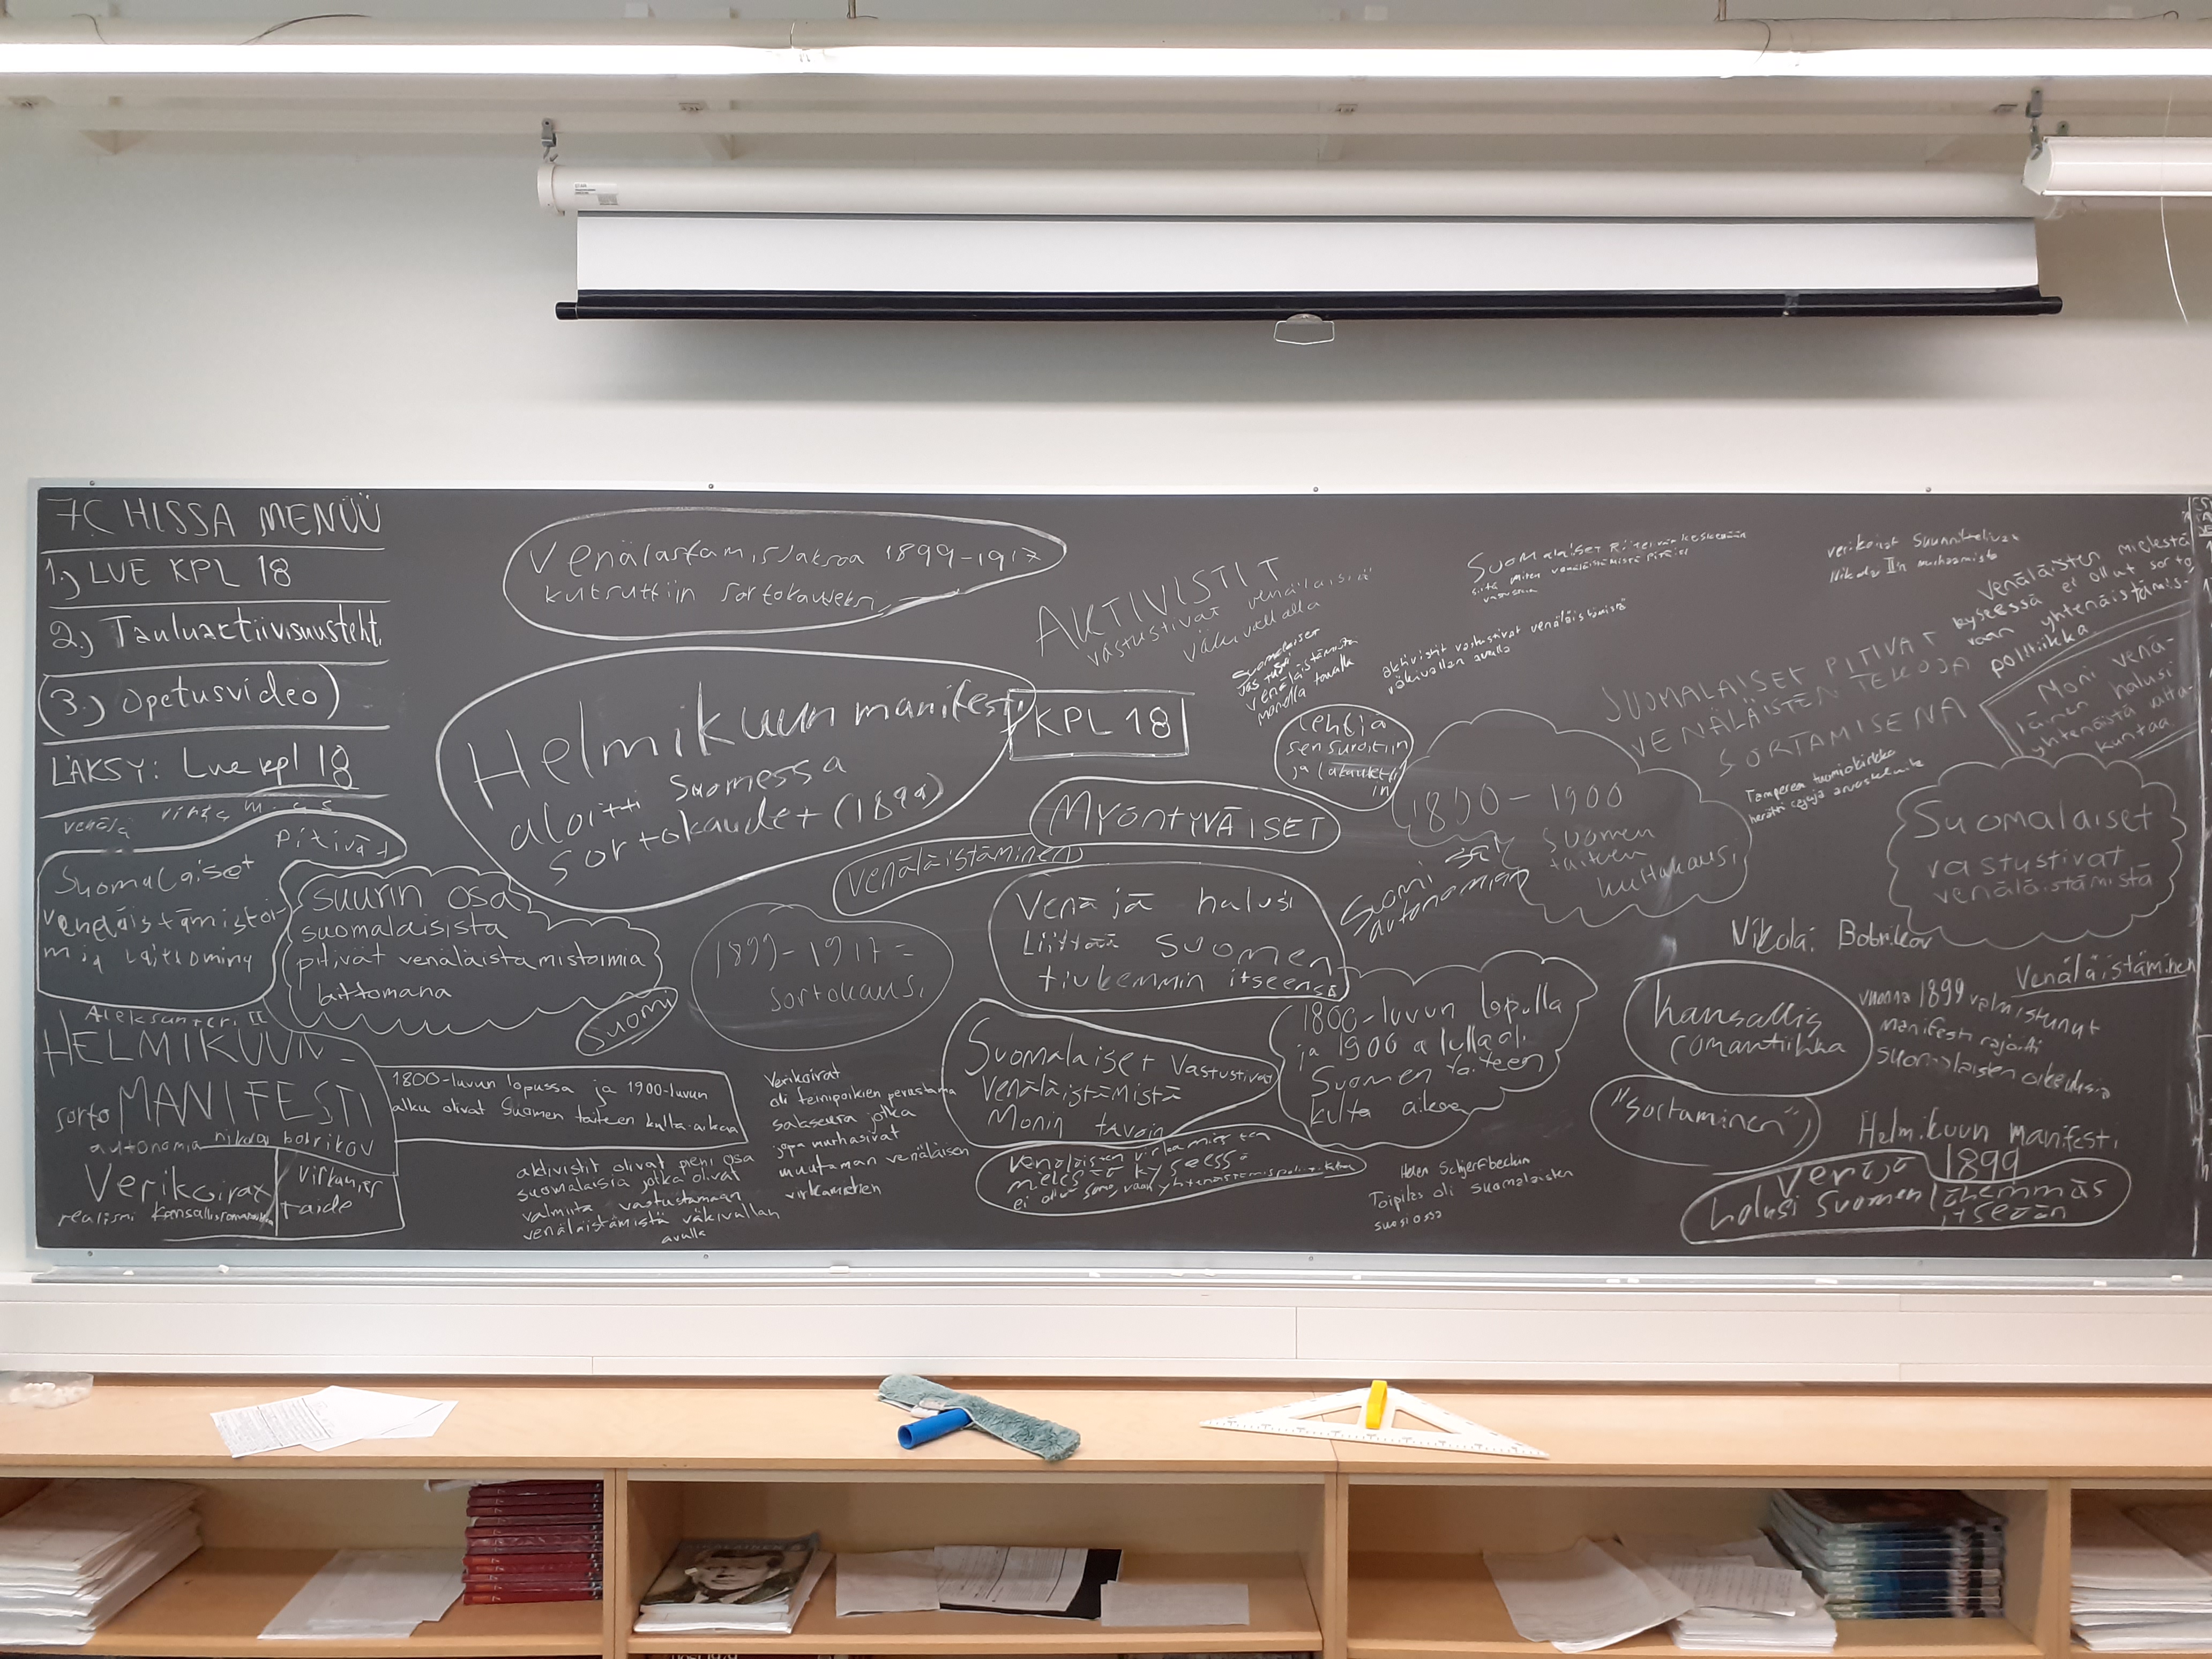 7C HISSA MENÜÜ
1.) LUE KPL 18
2.) Tauluaktiivisuusteht.
(3.) Opetusvideo)
LÄKSY: Lue kpl 18
venäjä
Suomalaiset pitivät
venäläistämistoi-
mia laittomina
suurin osa
suomalaisista
pitivät venäläistämistoimia
laittomana
Suomi
Aleksanteri II
HELMIKUUN-
sorto MANIFESTI
autonomia nikolai bobrikov
Verikoirat
realismi kansallisromantiikka
virkamies
taide
Venälästämisjaksoa 1899-1917
kutsuttiin sortokaudeksi
Helmikuun manifesti
aloitti Suomessa
sortokaudet (1899)
KPL 18
MYÖNTYVÄISET
venäläistäminen
1899-1917=
sortokausi
1800-luvun lopussa ja 1900-luvun
alku olivat Suomen taiteen kulta-aikaa
aktivistit olivat pieni osa
suomalaisia jotka olivat
valmiita vastustamaan
venäläistämistä väkivallan
avulla
Verikoirat
oli teinipoikien perustama
salaseura jotka
jopa murhasivat
muutaman venäläisen
virkamiehen
AKTIVISTIT
vastustivat venäläisiä
väkivallalla
Suomalaiset
venäläistämistä
monella tavalla
aktivistit vastustivat venäläistämistä
väkivallan avulla
Suomalaiset Riitelivät keskenään
siitä miten venäläistämistä pitäisi
vastustaa
Lehtiä
sensuroitiin
ja lakautetti
in
1800-1900
Suomen
taiteen
kultakausi
Suomi sai
autonomian
Venäjä halusi
Liittää Suomen
tiukemmin itseensä
Suomalaiset Vastustivat
Venäläistämistä
Monin tavoin
venäläisten virkamiesten
mielestä kyseessä
ei ollut sorto, vaan yhtenäistämispolitiikka
1800-luvun lopulla
ja 1900 alulla oli
Suomen taiteen
kulta aikaa
Helen Schjerfbeckin
Toipilas oli suomalaisten
suosiossa
verikoirat suunnittelivat
Nikolai II:n murhaamista
Venäläisten mielestä
kyseessä ei ollut sorto
vaan yhtenäistämis-
politiikka
SUOMALAISET PITIVÄT
VENÄLÄISTEN TEKOJA
SORTAMISENA
Moni venä-
läinen halusi
yhtenäistä valta-
kuntaa
Tampereen tuomiokirkko
herätti rajaja arvostelmite
Suomalaiset
vastustivat
venäläistämistä
Nikolai Bobrikov
Venäläistäminen
kansallis
romantiikka
vuonna 1899 valmistunut
manifesti rajoitti
suomalaisten oikeuksia
"sortaminen"
Helmikuun manifesti
1899
Venäjä
halusi Suomen lähemmäs
itseään